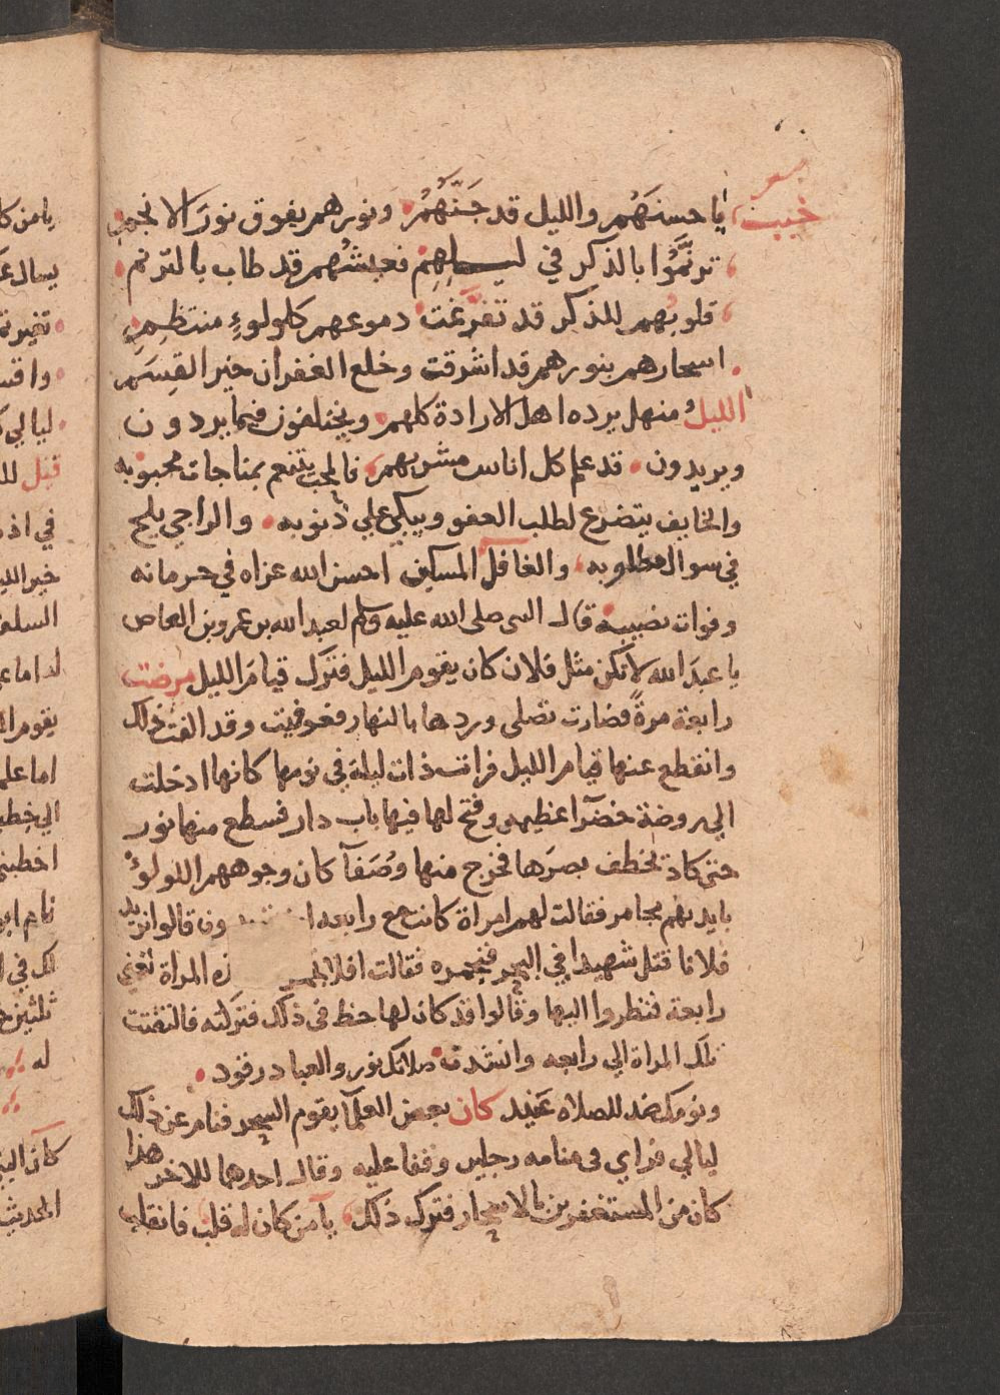 شعر
يا حسنَهُم والليل قد جَنَّهُمُ ونورهم يفوق نورَ الانجم
ترنَّمُوا بالذكر في ليلهِم فعيشُهم قد طاب بالترنم
قلوبُهم للذكر قد تفرَّغت دموعهم كلولوءٍ منتظِمِ
اسحارهم بنورهم قد اشرقت وخلع الغفران خير القِسَمِ
الليل منهل يرده اهل الارادة كلهم ويختلفون فيما يردون
ويريدون قد علم كل اناس مشربهم فالمحب يتنعم بمناجات محبوبه
والخايف يتضرع لطلب العفو ويبكي علي ذنوبه والراجي يلح
في سوال مطلوبه والغافل المسكين احسن الله عزاه في حرمانه
وفوات نصيبه قال النبي صلى الله عليه وسلم لعبد الله بن عمرو بن العاص
يا عبدَ الله لا تكن مثل فلان كان يقوم الليل فترك قيامَ الليل مرضت
رابعة مرةً فصارت تصلى وردها بالنهار فعوفيت وقد الفت ذلك
وانقطع عنها قيام الليل فرات ذات ليلة في نومها كانها ادخلت
الي روضة خضرآ عظيمه وفتح لها فيها باب دار فسطع منها نور
حتى كاد يخطف بصرَها فخرج منها وُصَفآ كان وجوههم اللولوُ
بايديهم مجامر فقالت لهم امراة كانت مع رابعه ون قالوا نريد
فلانا قتل شهيدا في البحر فنجمره فقالت افلا ذه المراة تعني
رابعة فنظروا اليها وقالوا قد كان لها حظ في ذلك فتركته فالتفتت
تلك المراة الي رابعه وانشدت صلاتك نور والعباد رقود
ونومك ضد للصلاه عنيد كان بعض العلمآ يقوم السحر فنام عن ذلك
ليالي فراي في منامه رجلين وقفا عليه وقال احدهما للاخر هذا
كان من المستغفرين بالاسحار فترك ذلك يا من كان له قلب فانقلب